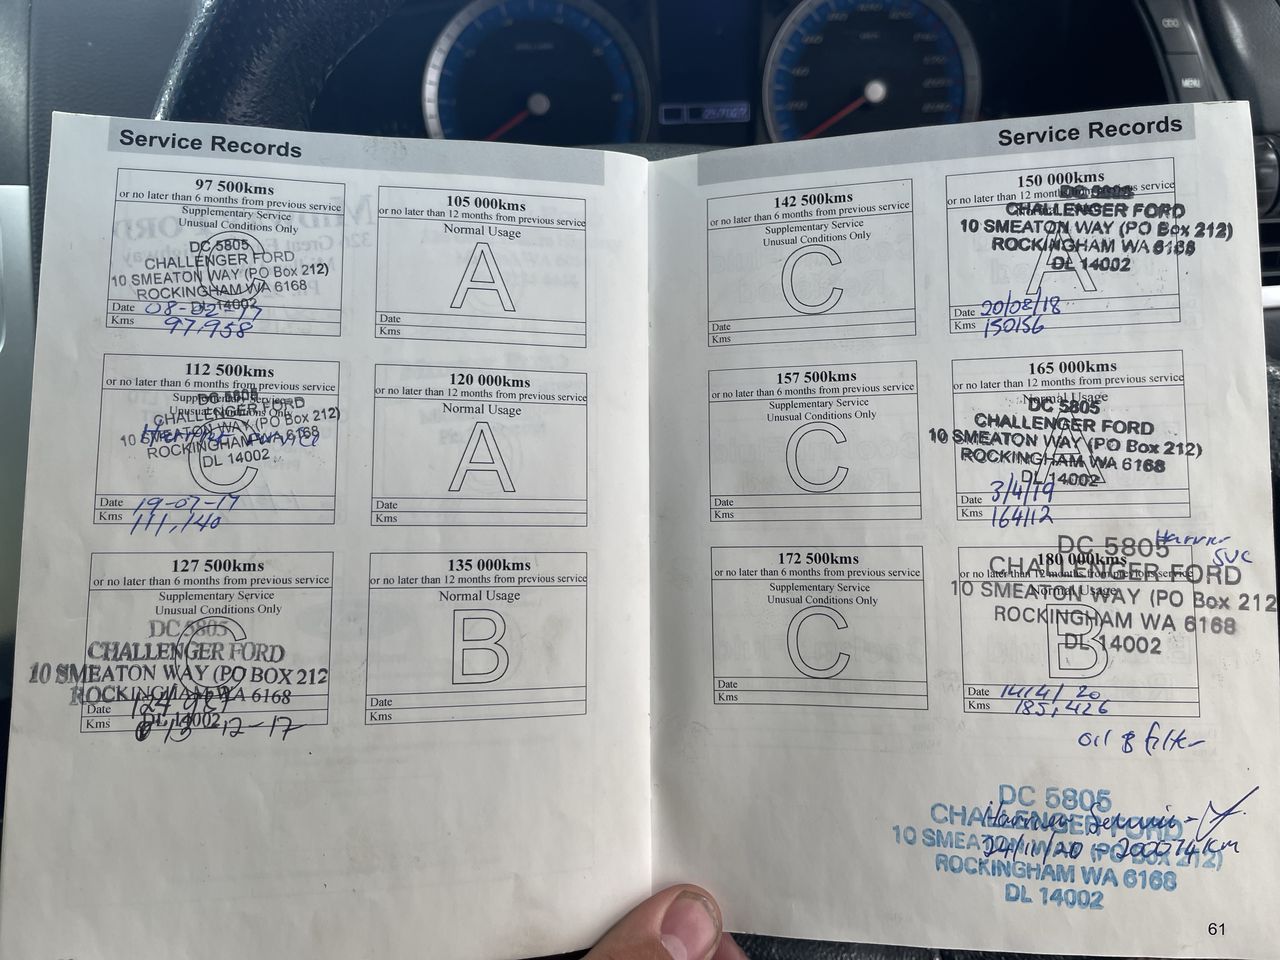 MENU
Service Records
97 500kms
or no later than 6 months from previous service
Supplementary Service
Unusual Conditions Only
C
DC 5805
CHALLENGER FORD
10 SMEATON WAY (PO Box 212)
ROCKINGHAM WA 6168
DL 14002
Date 08-02-17
Kms 97,958
105 000kms
or no later than 12 months from previous service
Normal Usage
A
Date
Kms
112 500kms
or no later than 6 months from previous service
Supplementary Service
Unusual Conditions Only
C
DC 5805
CHALLENGER FORD
10 SMEATON WAY (PO Box 212)
ROCKINGHAM WA 6168
DL 14002
Date 19-07-17
Kms 111,140
120 000kms
or no later than 12 months from previous service
Normal Usage
A
Date
Kms
127 500kms
or no later than 6 months from previous service
Supplementary Service
Unusual Conditions Only
C
DC 5805
CHALLENGER FORD
10 SMEATON WAY (PO BOX 212
ROCKINGHAM WA 6168
DL 14002
Date
Kms 13-12-17
135 000kms
or no later than 12 months from previous service
Normal Usage
B
Date
Kms
Service Records
142 500kms
or no later than 6 months from previous service
Supplementary Service
Unusual Conditions Only
C
Date
Kms
150 000kms
or no later than 12 months from previous service
A
DC 5805
CHALLENGER FORD
10 SMEATON WAY (PO Box 212)
ROCKINGHAM WA 6168
DL 14002
Date 20/08/18
Kms 150156
157 500kms
or no later than 6 months from previous service
Supplementary Service
Unusual Conditions Only
C
Date
Kms
165 000kms
or no later than 12 months from previous service
Normal Usage
A
DC 5805
CHALLENGER FORD
10 SMEATON WAY (PO Box 212)
ROCKINGHAM WA 6168
DL 14002
Date 3/4/19
Kms 164112
172 500kms
or no later than 6 months from previous service
Supplementary Service
Unusual Conditions Only
C
Date
Kms
180 000kms
or no later than 12 months from previous service
Normal Usage
B
DC 5805
CHALLENGER FORD
10 SMEATON WAY (PO Box 212
ROCKINGHAM WA 6168
DL 14002
SVC
Date 14/4/20
Kms 185,426
oil & filter
DC 5805
CHALLENGER FORD
10 SMEATON WAY (PO Box 212)
ROCKINGHAM WA 6168
DL 14002
24/11/20 - 200074KM
61